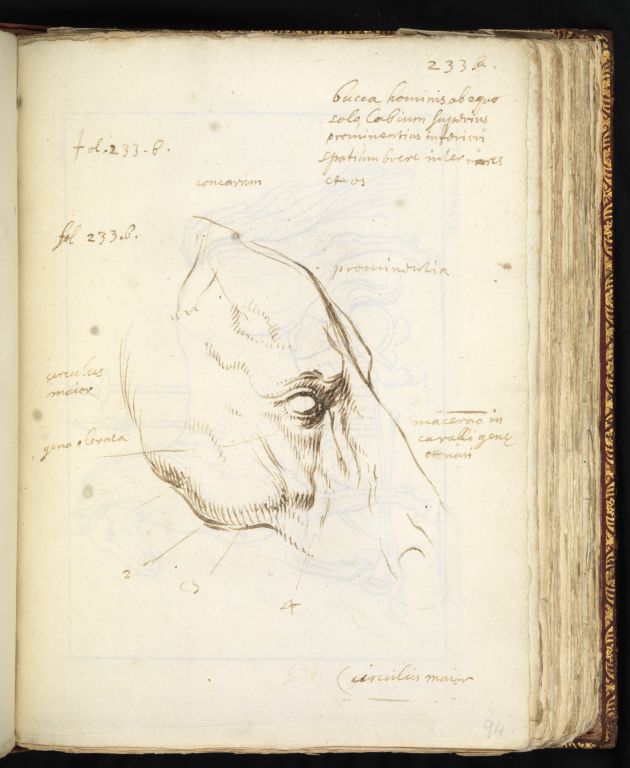 233 a.
bucca hominis ab equo
solo, Labium superius
prominentius inferiori
spatium breve inter nares
et os
fol. 233. b.
concavum
fol 233. b.
prominentia
circulus
maior
gena elevata
in
cavalli gene
et nasi
2
3
4
circulus maior
94